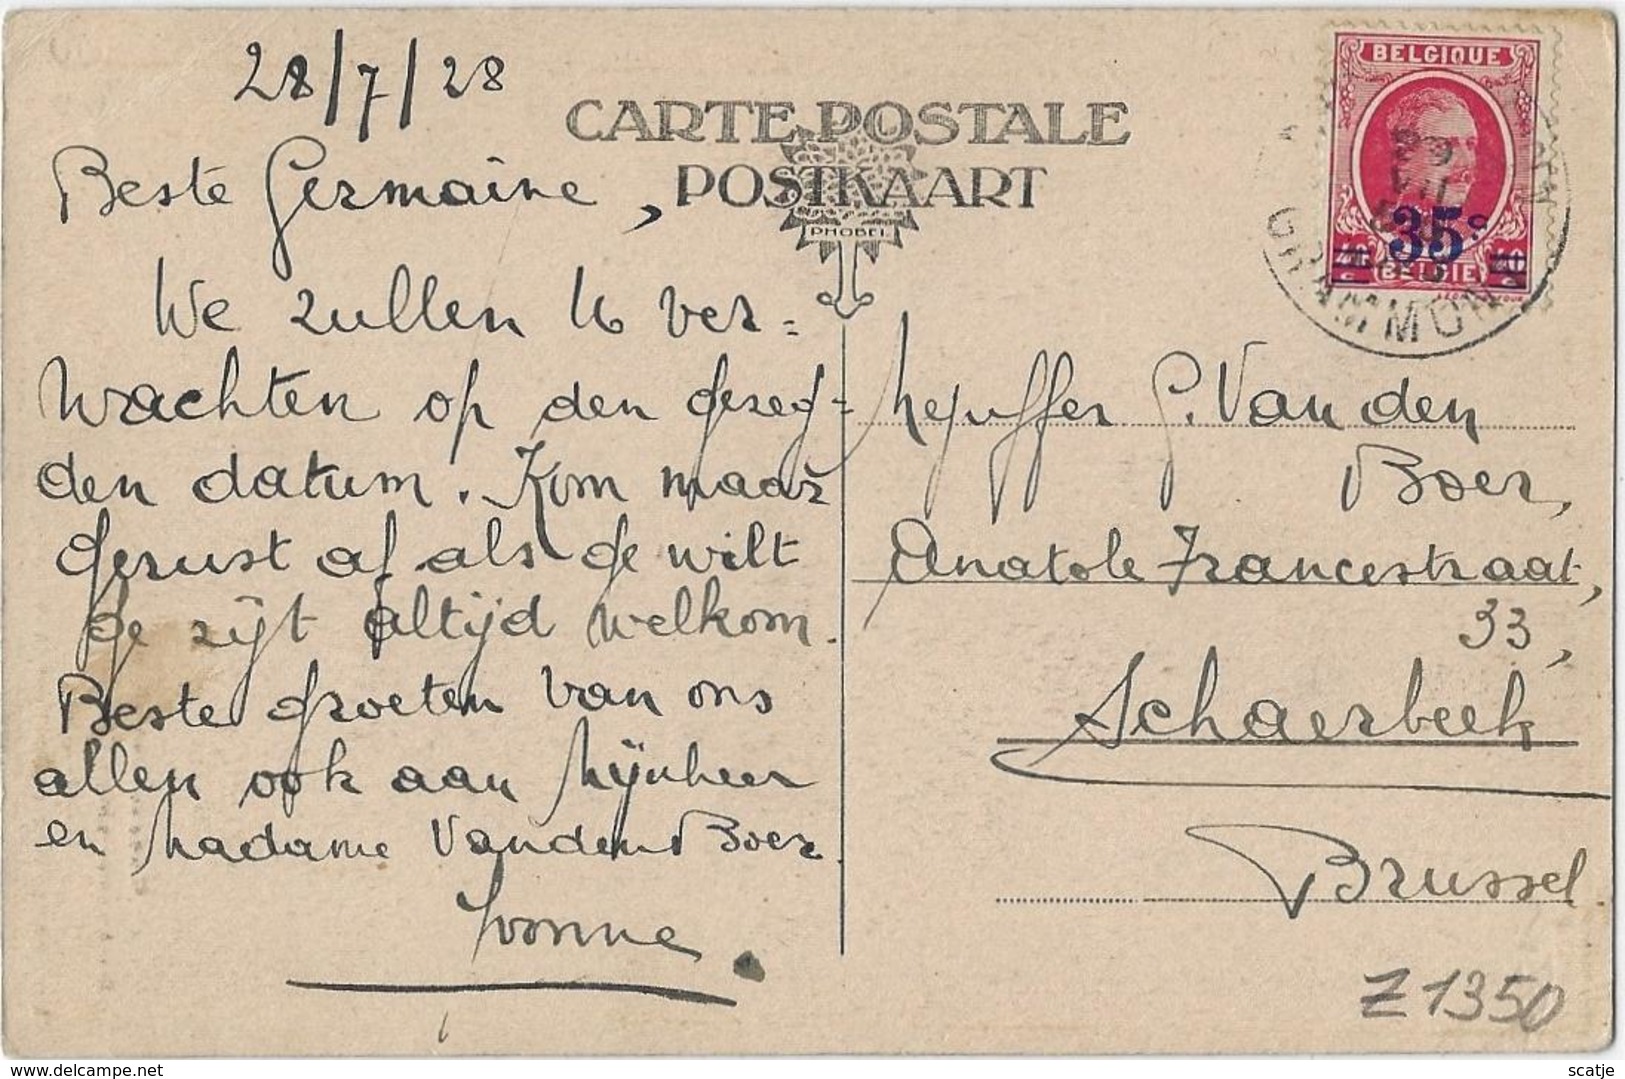 28/7/28
CARTE POSTALE
POSTKAART
PHOBEL
Beste Germaine,
We zullen U ver=
wachten op den gezeg=
den datum. Kom maar
gerust af als ge wilt
ge zijt altijd welkom.
Beste groeten van ons
allen ook aan Mijnheer
en Madame Vanden Boer.
Yvonne.
BELGIQUE
35c
BELGIE
GRAMMONT
Mejuffer G. Van den
Boer,
Anatole Francestraat,
33,
Schaerbeek
Brussel
Z1350
delcampe.net
scatje